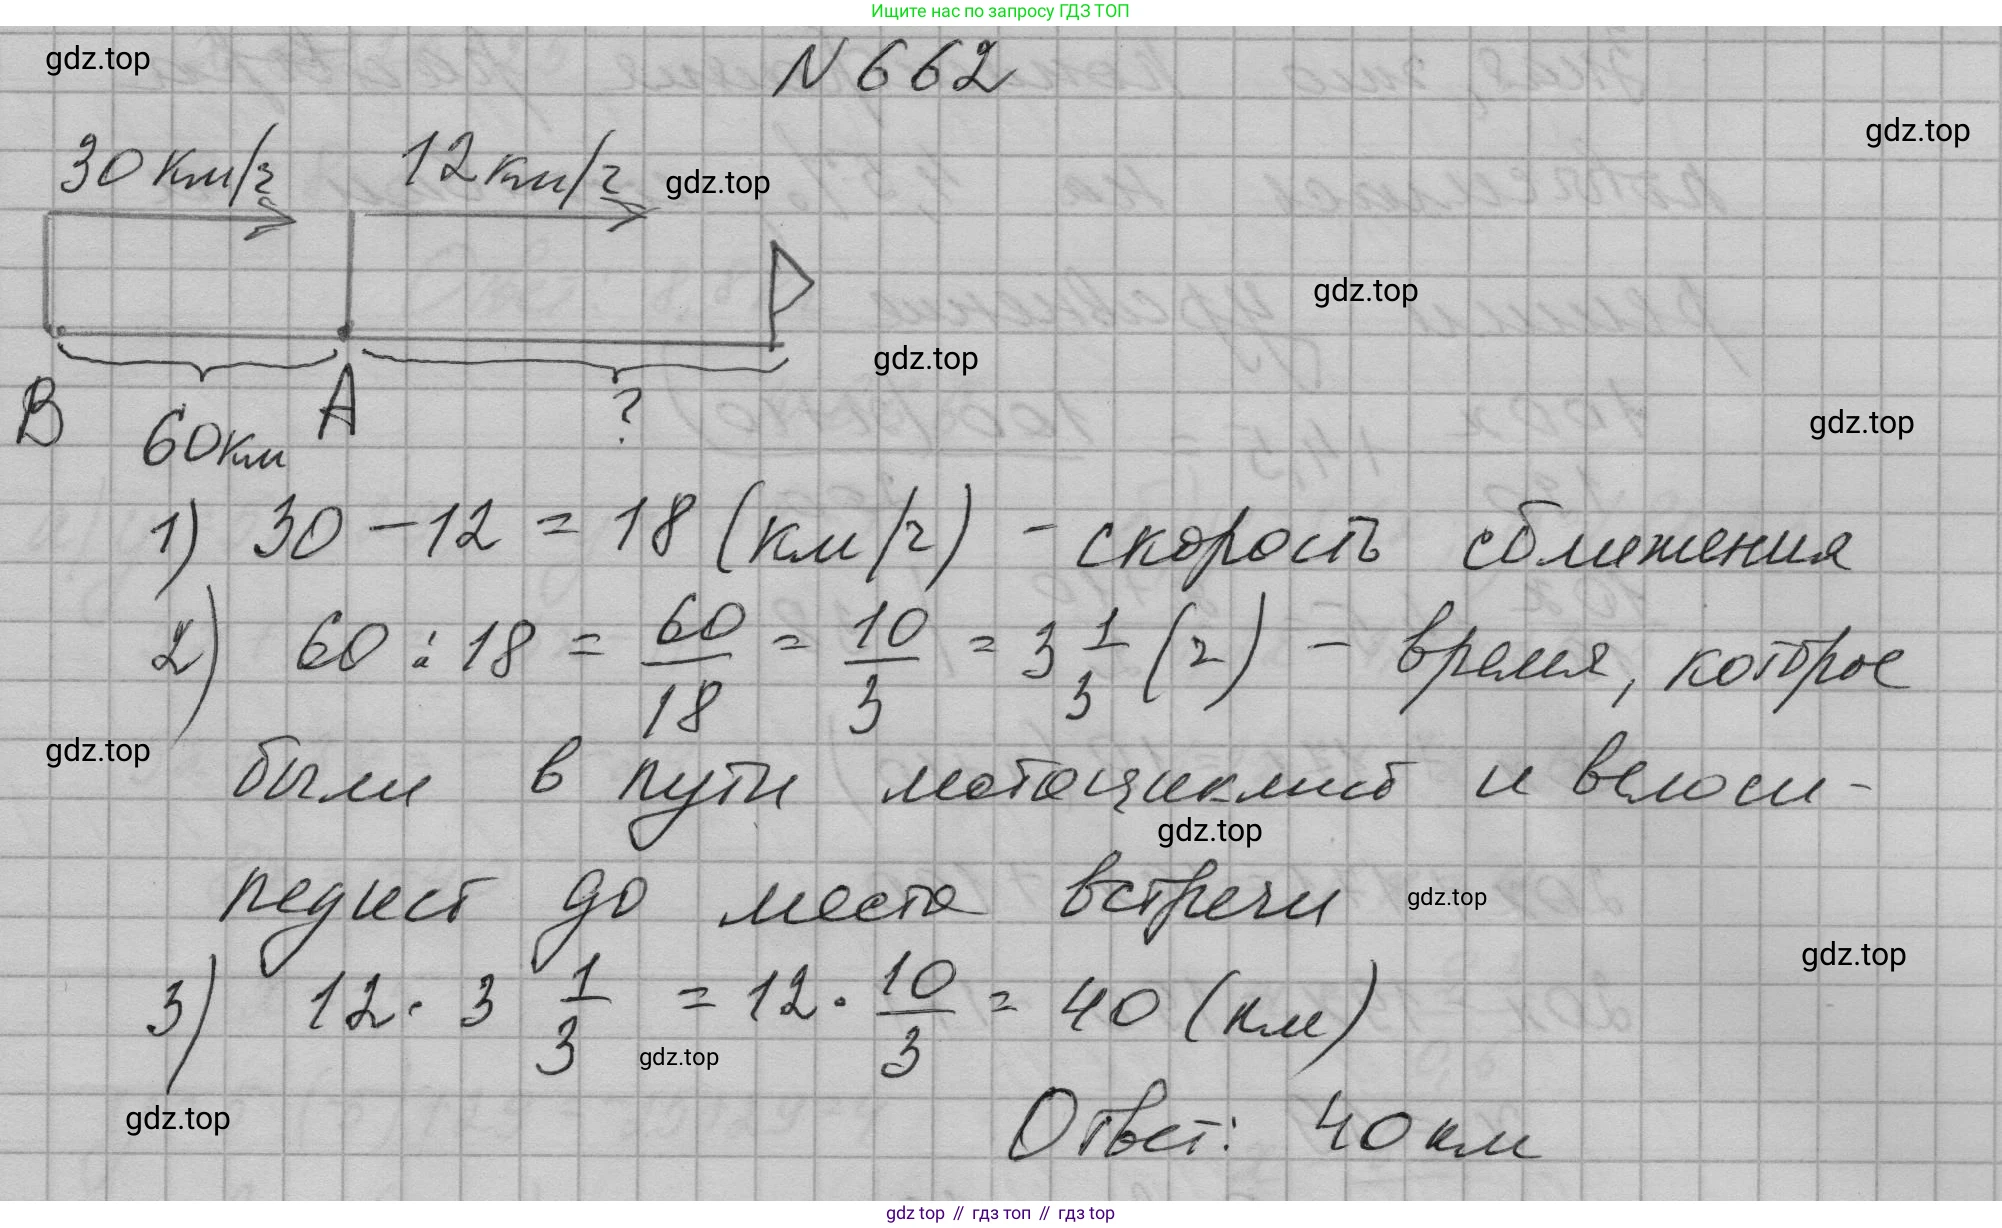 Ищите нас по запросу ГДЗ ТОП
gdz.top
N 662
gdz.top
30 км/ч 12 км/ч gdz.top
gdz.top
gdz.top
B 60км A ?
gdz.top
1) 30 - 12 = 18 (км/ч) - скорость сближения
2) 60 : 18 = 60/18 = 10/3 = 3 1/3 (ч) - время, которое
gdz.top
были в пути мотоциклист и велоси-
gdz.top
педист до места встречи
gdz.top
gdz.top
3) 12 · 3 1/3 = 12 · 10/3 = 40 (км)
gdz.top
gdz.top
Ответ: 40 км
gdz top // гдз топ // гдз top